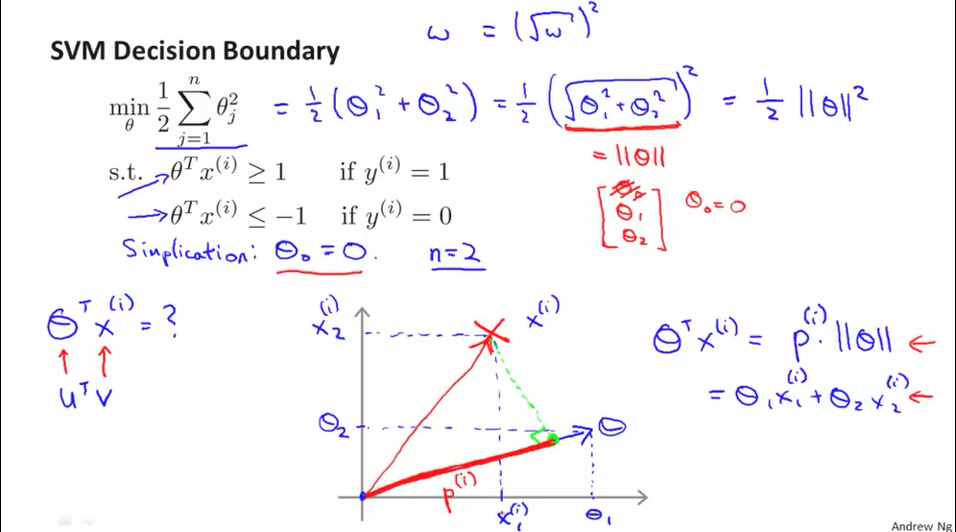 ω = (√ω)²
SVM Decision Boundary
min_θ 1/2 ∑_{j=1}^{n} θ_j² = 1/2 (Θ₁² + Θ₂²) = 1/2 (√(Θ₁² + Θ₂²))² = 1/2 ||Θ||²
= ||Θ||
s.t. θᵀx⁽ⁱ⁾ ≥ 1 if y⁽ⁱ⁾ = 1
θᵀx⁽ⁱ⁾ ≤ −1 if y⁽ⁱ⁾ = 0
[Θ₀ Θ₁ Θ₂] Θ₀ = 0
Simplication: Θ₀ = 0. n=2
Θᵀx⁽ⁱ⁾ = ?
↑ ↑
uᵀv
x₂⁽ⁱ⁾
x⁽ⁱ⁾
Θ₂
Θ
p⁽ⁱ⁾
x₁⁽ⁱ⁾
Θ₁
Θᵀx⁽ⁱ⁾ = p⁽ⁱ⁾ · ||Θ|| ←
= Θ₁x₁⁽ⁱ⁾ + Θ₂x₂⁽ⁱ⁾ ←
Andrew Ng